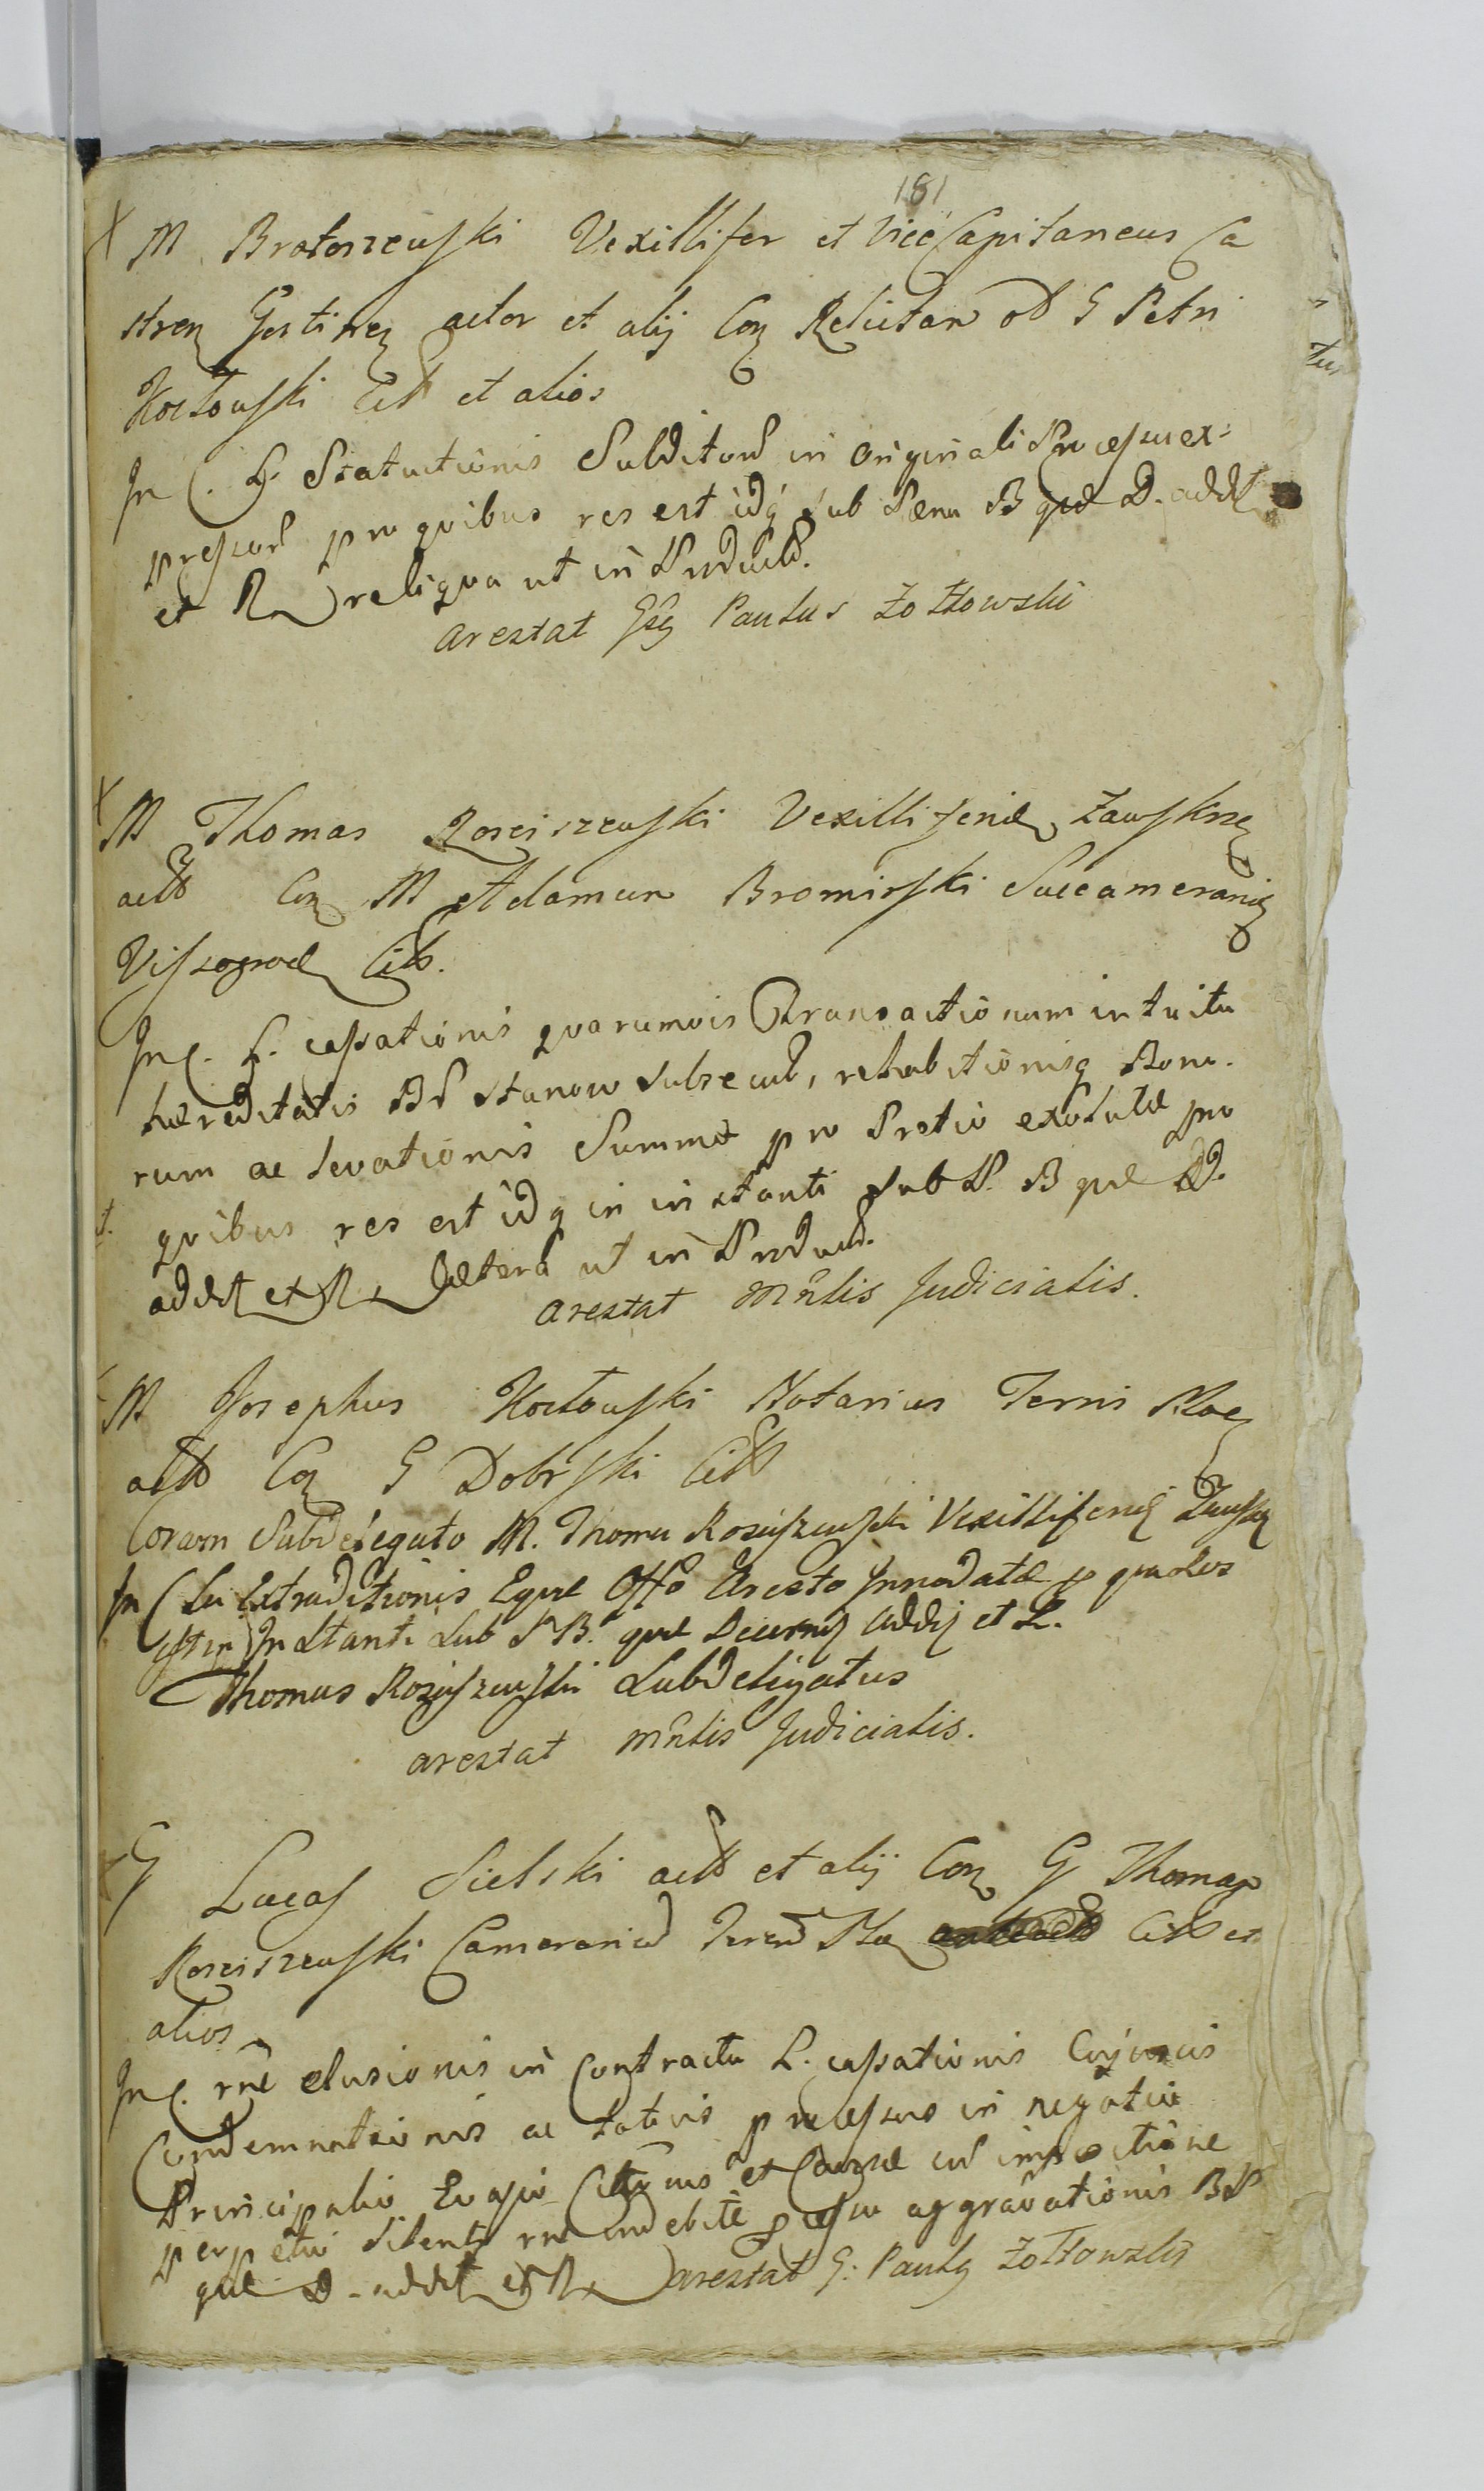 181
M Bratoszewski Vexillifer et Vice Capitaneus Ca
stren Gostinen actor et alij Con Relictan od G Petri
Koztowski Citt et alios
In C. L. Statuitionis Subditord in originali Processu ex-
pressord pro quibus res est idq sub Pæna B quæ D. addt
et R reliqua ut in Producto.
arestat Gsg Paulus Zołtowski
M Thomas Rosciszewski Vexilliferid Zawskrze
actt Con M Adamum Bromirski Succamerarig
Vissograd Citt.
In C. L. cassationis quarumvis Transactionum intuitu
hæreditatis BP Stanow subsecut, rehabitionisq Bono-
rum ac levationis Summæ pro Pretio exolutæ pro
quibus res est idq in instanti sub P. B quæ D.
addt et R Cætera ut in Product.
arestat Mñlis Judicialis.
M Josephus Koztowski Notarius Terris Ploc
actt Con G Dobrski Citt
Coram Subdelegato M. Thoma Rosciszewski Vexilliferid Zawsk
In C La Extraditionis Equæ Offo Aresto Innodatæ p qua res
est in Instanti Sub P B. quæ Decernet Addt et R.
Thomas Rosciszewski Subdeligatus
arestat mñlis Judicialis.
G Lucas Sielski actt et alij Con G Thomam
Rosciszewski Camerarid Terrd Plo Citt et
alios
In C. rñe elusionis in Contractu L. cassationis Cujusvis
Condemnationis ac totius processus in negotio
Principalio Evasio et Causæ impositione
perpetui silentij rñe indebite p cessu aggravationis BP
quæ D. addt et R arestat G: Paulg Zołtowski